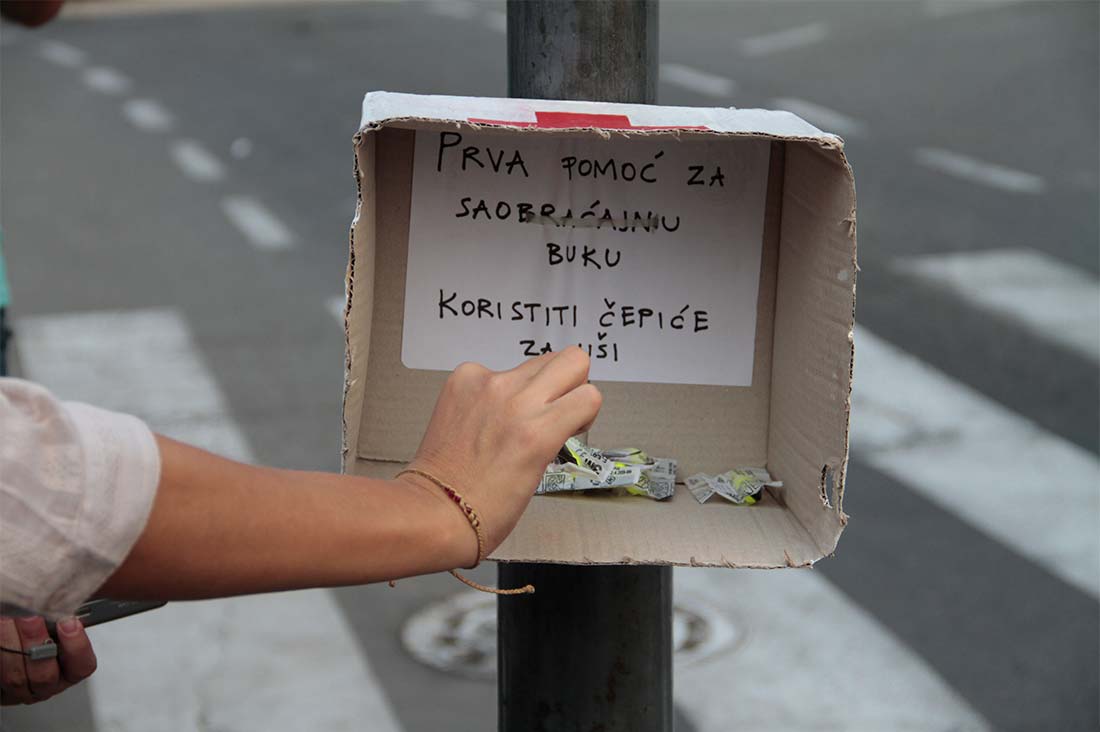 PRVA POMOĆ ZA
SAOBRAĆAJNU
BUKU
KORISTITI ČEPIĆE
ZA UŠI